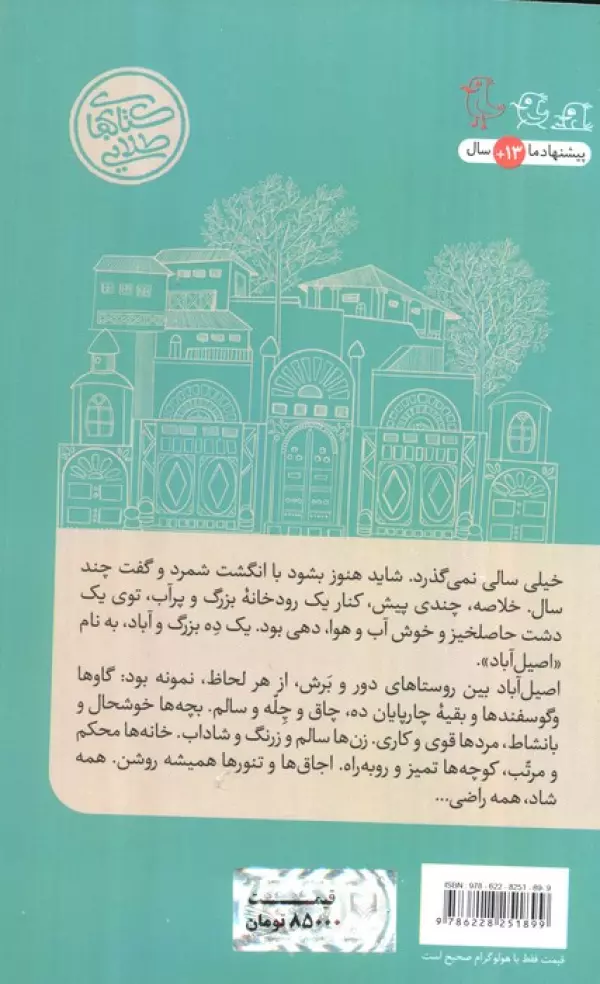 کتابهای
طلایی
پیشنهاد ما +۱۳ سال
خیلی سالی نمی‌گذرد. شاید هنوز بشود با انگشت شمرد و گفت چند
سال. خلاصه، چندی پیش، کنار یک رودخانۀ بزرگ و پرآب، توی یک
دشت حاصلخیز و خوش آب و هوا، دهی بود. یک دِه بزرگ و آباد، به نام
«اصیل‌آباد».
اصیل‌آباد بین روستاهای دور و بَرش، از هر لحاظ، نمونه بود: گاوها
وگوسفندها و بقیۀ چارپایان ده، چاق و چِلّه و سالم. بچه‌ها خوشحال و
بانشاط، مردها قوی و کاری. زن‌ها سالم و زرنگ و شاداب. خانه‌ها محکم
و مرتّب، کوچه‌ها تمیز و روبه‌راه. اجاق‌ها و تنورها همیشه روشن. همه
شاد، همه راضی...
قیمت
۸۵۰۰۰ تومان
ISBN: 978-622-8251-89-9
9 786228 251899
قیمت فقط با هولوگرام صحیح است